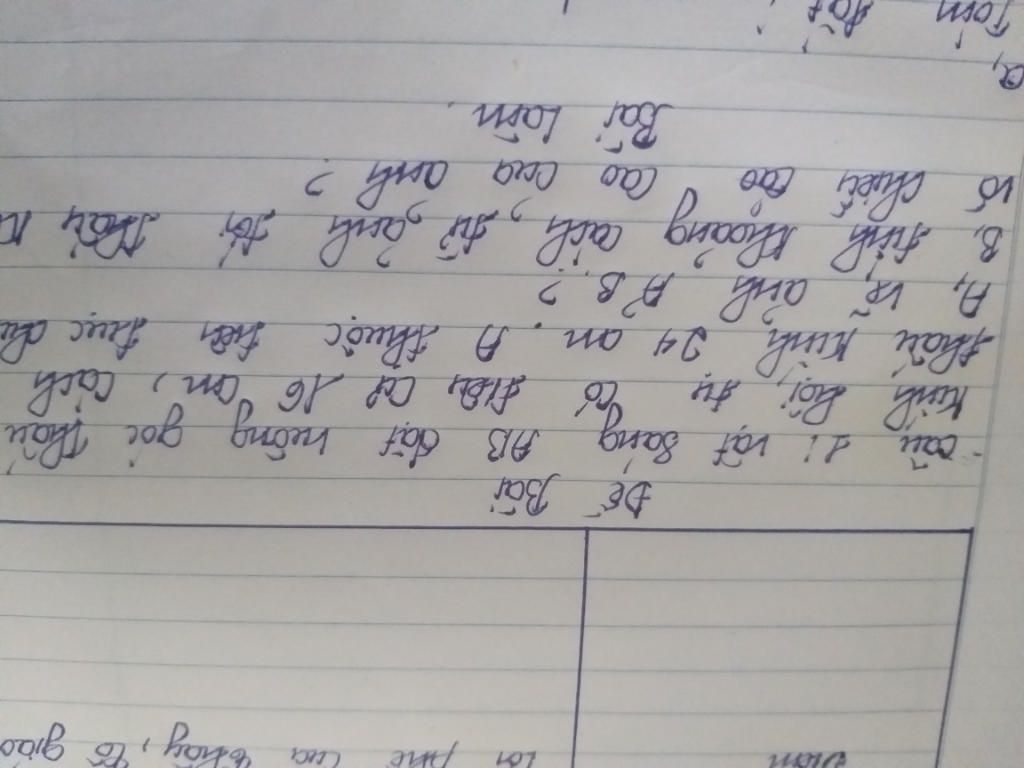 Điểm Lời phê của thầy, cô giáo
Đề Bài
câu 1: vật sáng AB đặt vuông góc thấu
kính hội tụ có tiêu cự 16 cm, cách
thấu kính 24 cm. A thuộc trên trục
A, vẽ ảnh A'B'?
B, tính khoảng cách, từ ảnh tới thấu
và chiều cao của ảnh?
Bài Làm.
a, Tóm tắt